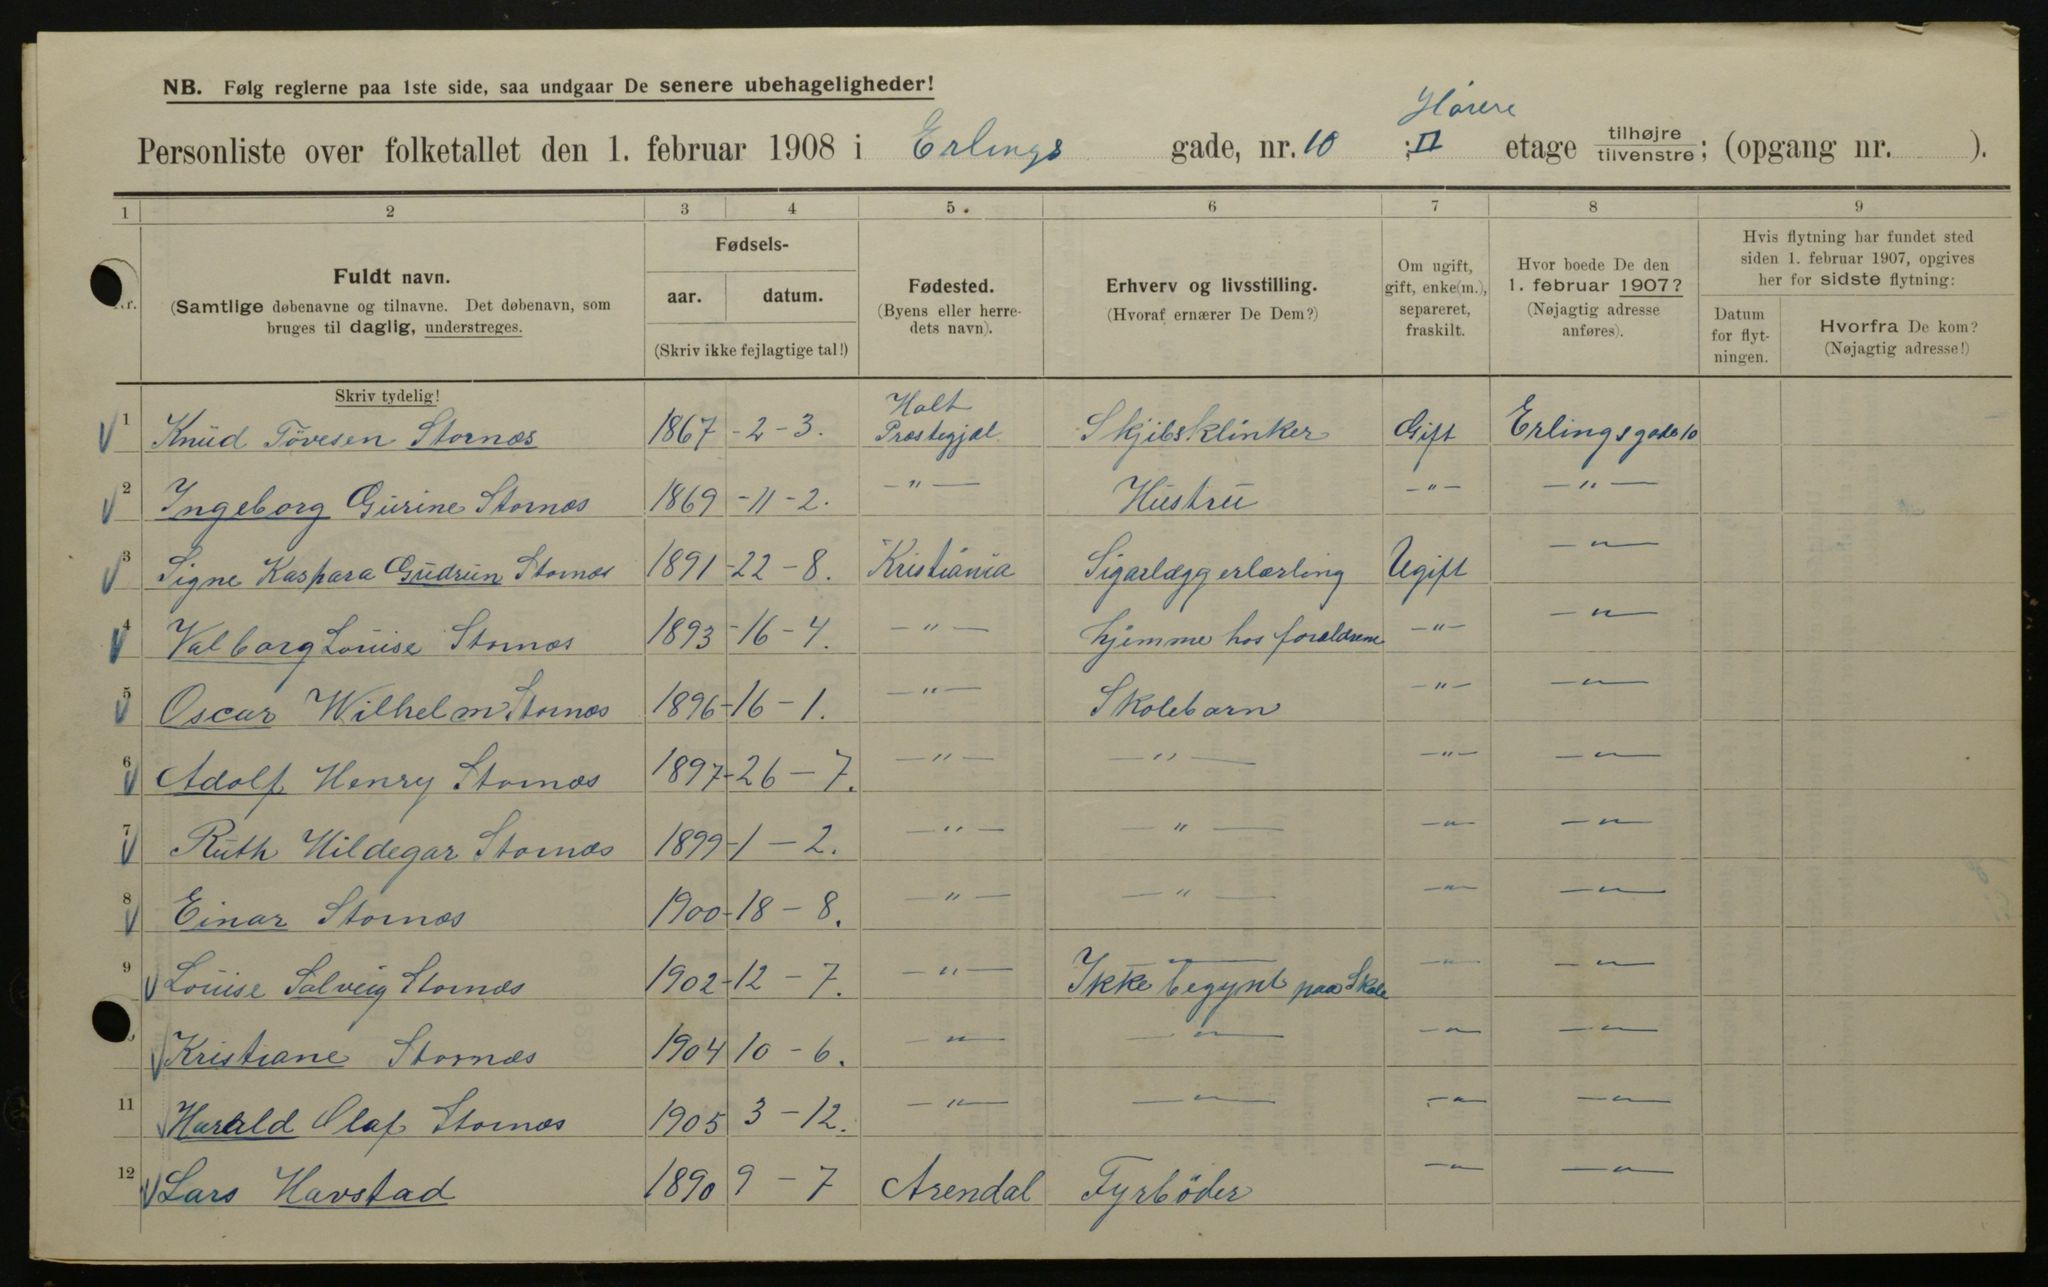 NB. Følg reglerne paa 1ste side, saa undgaar De senere ubehageligheder!
Høiere
Personliste over folketallet den 1. februar 1908 i Erlings gade, nr. 10 ; II etage tilhøjre/tilvenstre; (opgang nr. ).
1 2 3 4 5. 6 7 8 9
Nr.
Fuldt navn.
(Samtlige døbenavne og tilnavne. Det døbenavn, som
bruges til daglig, understreges.
Fødsels-
aar. datum.
(Skriv ikke fejlagtige tal!)
Fødested.
(Byens eller herre-
dets navn).
Erhverv og livsstilling.
(Hvoraf ernærer De Dem?)
Om ugift,
gift, enke(m.),
separeret,
fraskilt.
Hvor boede De den
1. februar 1907?
(Nøjagtig adresse
anføres).
Hvis flytning har fundet sted
siden 1. februar 1907, opgives
her for sidste flytning:
Datum
for flyt-
ningen.
Hvorfra De kom?
(Nøjagtig adresse!)
Skriv tydelig!
1 Knud Tövesen Stornæs 1867 - 2 - 3. Holt Præstegjæl. Skjibsklinker Gift Erlingsgade 10
2 Ingeborg Gurine Stornæs 1869 - 11 - 2. — " — Hustru — " — — " —
3 Signe Kaspara Gudrun Stornæs 1891 - 22 - 8. Kristiania Sigarlæggerlærling Ugift — " —
4 Valborg Louise Stornæs 1893 - 16 - 4. — " — hjemme hos forældrene — " — — " —
5 Oscar Wilhelm Stornæs 1896 - 16 - 1. — " — Skolebarn — " — — " —
6 Adolf Henry Stornæs 1897 - 26 - 7. — " — — " — — " — — " —
7 Ruth Hildegar Stornæs 1899 - 1 - 2. — " — — " — — " — — " —
8 Einar Stornæs 1900 - 18 - 8. — " — — " — — " — — " —
9 Louise Solveig Stornæs 1902 - 12 - 7. — " — Ikke begynt paa Skole — " — — " —
Kristiane Stornæs 1904 10 - 6. — " — — " — — " — — " —
11 Harald Olaf Stornæs 1905 3 - 12. — " — — " — — " — — " —
12 Lars Havstad 1890 9 - 7 Arendal Fyrböder — " — — " —